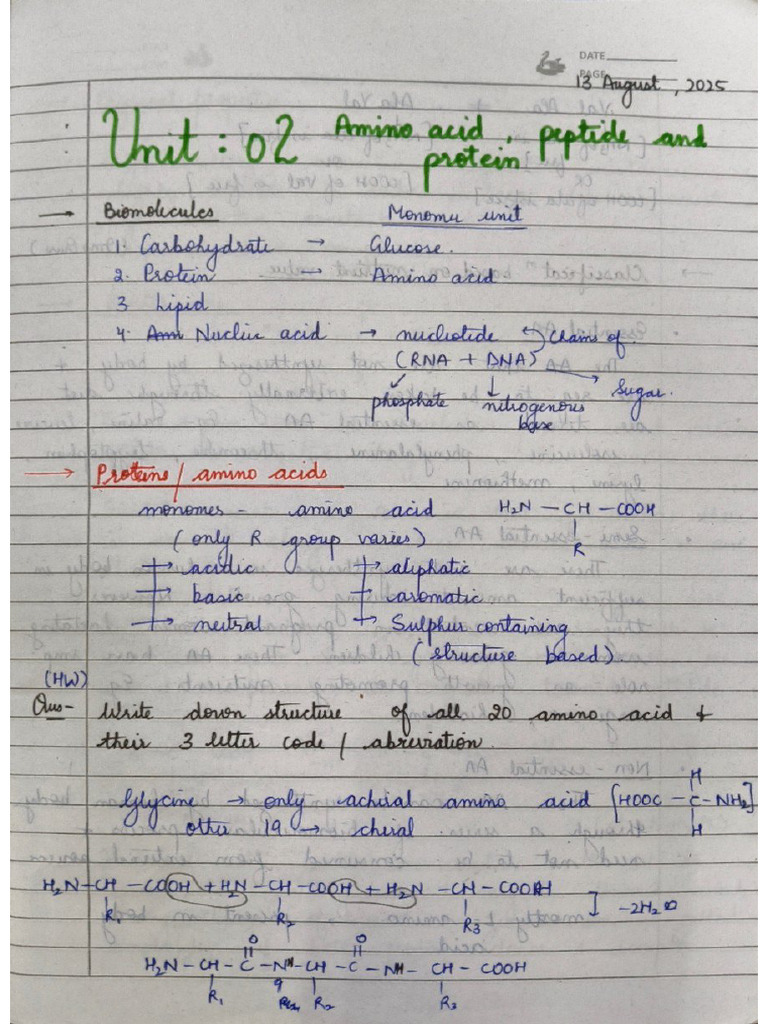 DATE
PAGE
13 August, 2025
Unit : 02 Amino acid, peptide and
protein
→ Biomolecules Monomer unit
1. Carbohydrate → Glucose.
2. Protein → Amino acid
3 Lipid
4. Nucleic acid → nucleotide ↔ Chains of
(RNA + DNA)
phosphate nitrogenous base Sugar.
→ Proteins / amino acids
monomers - amino acid H₂N — CH — COOH
(only R group varies) R
→ acidic → aliphatic
→ basic → aromatic
→ neutral → Sulphur containing
(structure based).
(HW)
Ques- Write down structure of all 20 amino acid &
their 3 letter code / abreviation.
Glycine → only achiral amino acid [HOOC — C — NH₂]
H
H
other 19 → chiral.
H₂N — CH — COOH + H₂N — CH — COOH + H₂N — CH — COOH
R₁ R₂ R₃ ] -2H₂O
O O
H₂N — CH — C — NH — CH — C — NH — CH — COOH
R₁ R₂ R₃